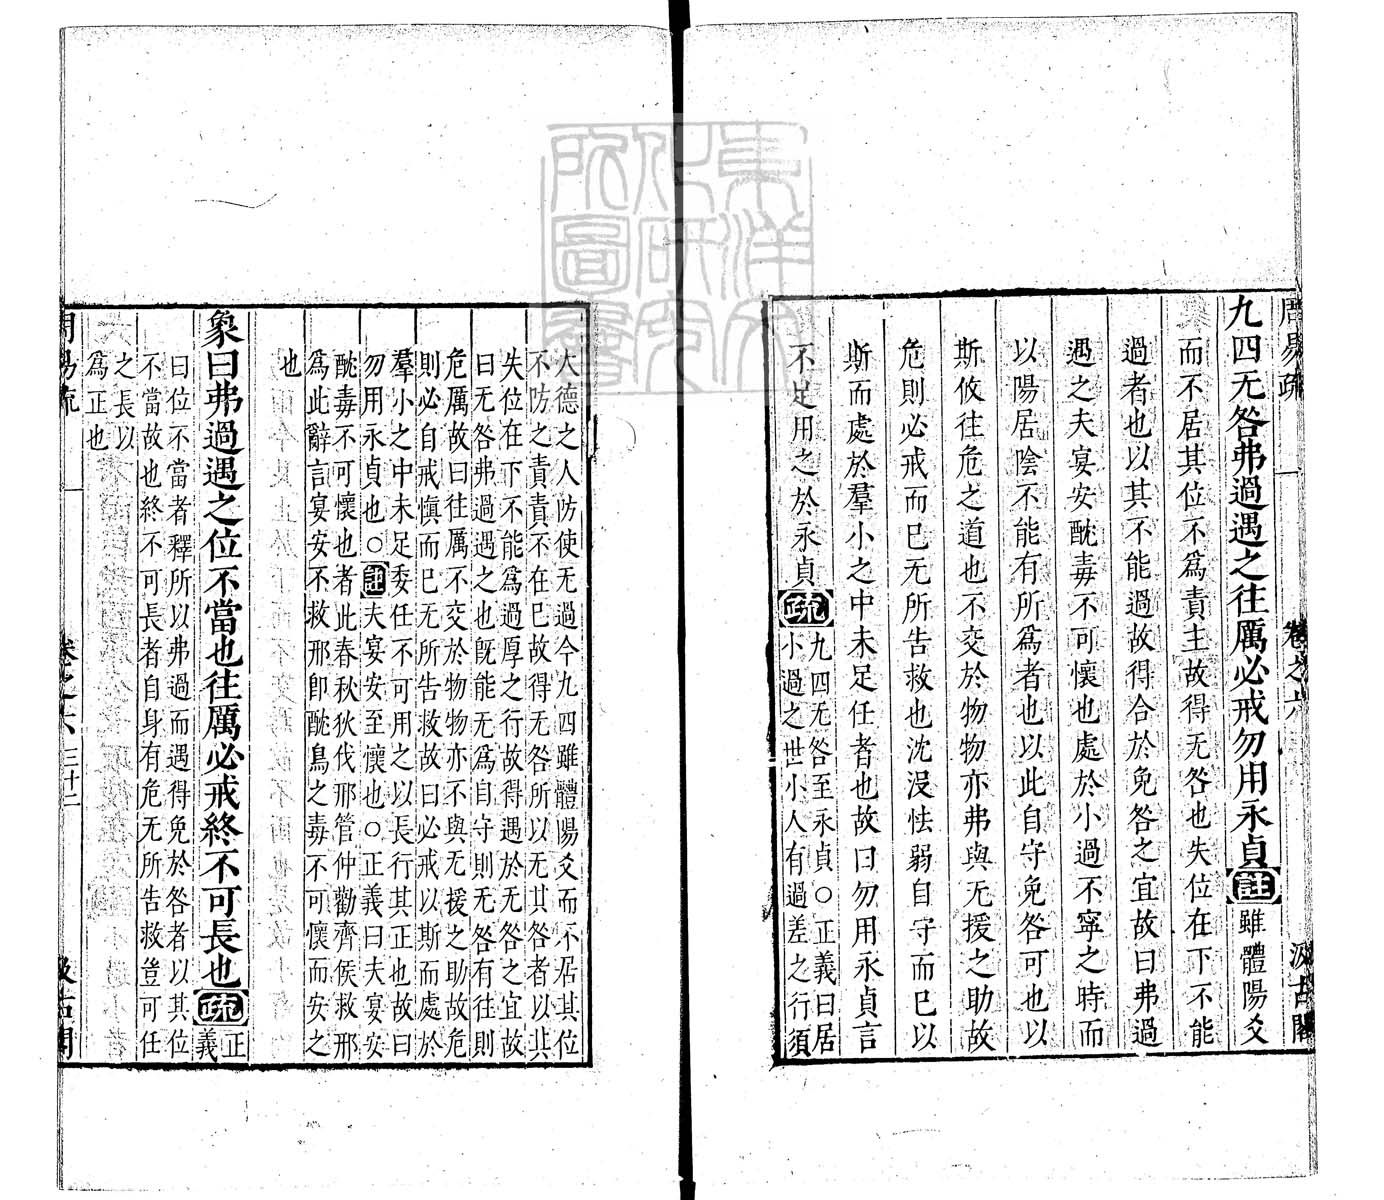 周易疏
卷之六
汲古閣
九四无咎弗過遇之往厲必戒勿用永貞註雖體陽爻
而不居其位不爲責主故得无咎也失位在下不能
過者也以其不能過故得合於免咎之宜故曰弗過
遇之夫宴安酖毒不可懷也處於小過不寧之時而
以陽居陰不能有所爲者也以此自守免咎可也以
斯攸往危之道也不交於物物亦弗與无援之助故
危則必戒而已无所告救也沈沒怯弱自守而已以
斯而處於羣小之中未足任者也故曰勿用永貞言
不足用之於永貞疏
九四无咎至永貞○正義曰居
小過之世小人有過差之行須
大德之人防使无過今九四雖體陽爻而不居其位
不防之責責不在已故得无咎所以无其咎者以其
失位在下不能爲過厚之行故得遇於无咎之宜故
曰无咎弗過遇之也旣能无爲自守則无咎有往則
危厲故曰往厲不交於物物亦不與无援之助故危
則必自戒愼而已无所告救故曰必戒以斯而處於
羣小之中未足委任不可用之以長行其正也故曰
勿用永貞也○註夫宴安至懷也○正義曰夫宴安
酖毒不可懷也者此春秋狄伐邢管仲勸齊侯救邢
爲此辭言宴安不救邢卽酖鳥之毒不可懷而安之
也
象曰弗過遇之位不當也往厲必戒終不可長也疏
正
義
曰位不當者釋所以弗過而遇得免於咎者以其位
不當故也終不可長者自身有危无所告救豈可任
之長以
爲正也
周易疏
卷之六
三十二
汲古閣
東洋文
化研究
所圖書